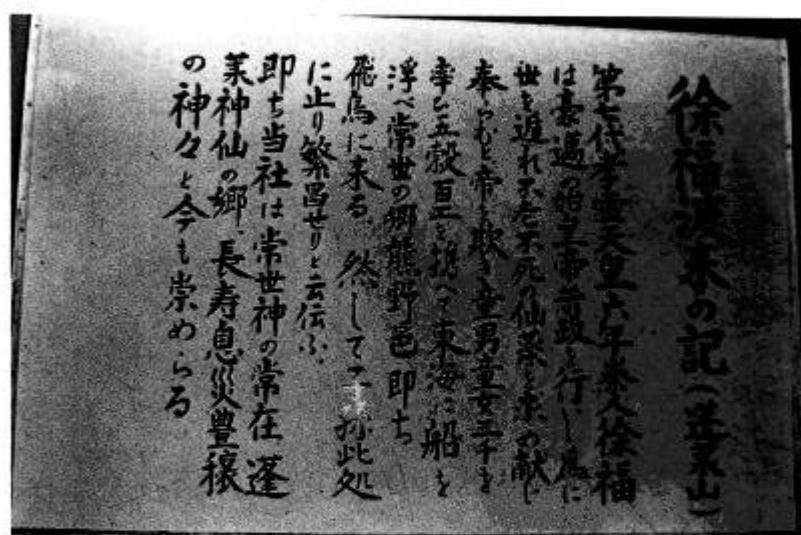 徐福渡来の記(蓬莱山)
第七代孝霊天皇六年秦人徐福
は豪邁の始皇帝苛政を行いし為に
世を遁れ不老不死の仙薬を求め献じ
奉らむと帝を欺き童男童女三千を
率ひ五穀百工を携へて東海に船を
浮べ常世の郷熊野邑即ち
飛鳥に来る、然して子孫此処
に止り繁昌せりと云伝ふ、
即ち当社は常世神の常在蓬
莱神仙の郷、長寿息災豊穣
の神々と今も崇めらる